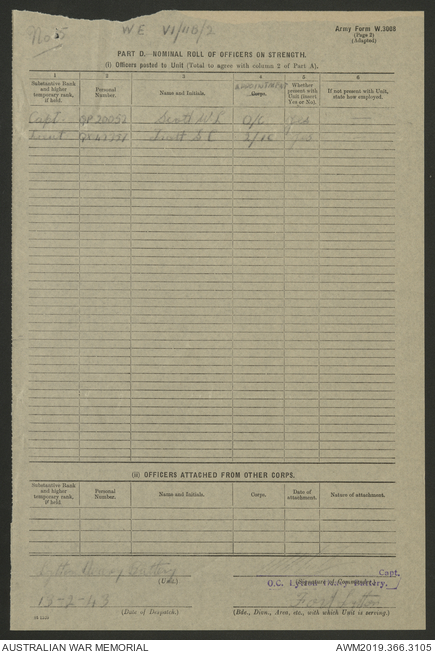 No 5
W.E. VI/110/2
Army Form W.3008
(Page 3)
(Adapted)
PART D.—NOMINAL ROLL OF OFFICERS ON STRENGTH.
(i) Officers posted to Unit (Total to agree with column 2 of Part A).
1 2 3 4 5 6
Substantive Rank and higher temporary rank, if held.
Personal Number.
Name and Initials.
APPOINTMENT
Corps.
Whether present with Unit (insert Yes or No).
If not present with Unit, state how employed.
Capt. Scott O/C Yes —
Lieut Yes —
(ii) OFFICERS ATTACHED FROM OTHER CORPS.
Substantive Rank and higher temporary rank, if held.
Personal Number.
Name and Initials.
Corps.
Date of attachment.
Nature of attachment.
Lytton Battery
(Unit.)
Capt.
O.C. Lytton Battery.
13-2-43
(Date of Despatch.)
Fort Lytton
(Bde., Divn., Area, etc., with which Unit is serving.)
AUSTRALIAN WAR MEMORIAL
AWM2019.366.3105